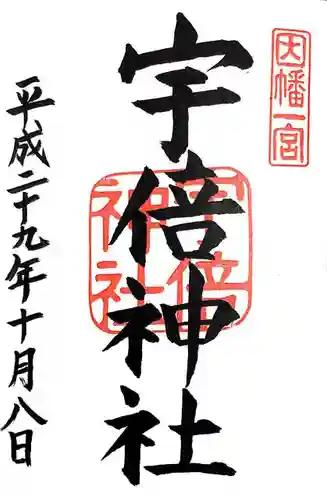 因幡一宮
宇倍神社
宇倍
神社
平成二十九年十月八日